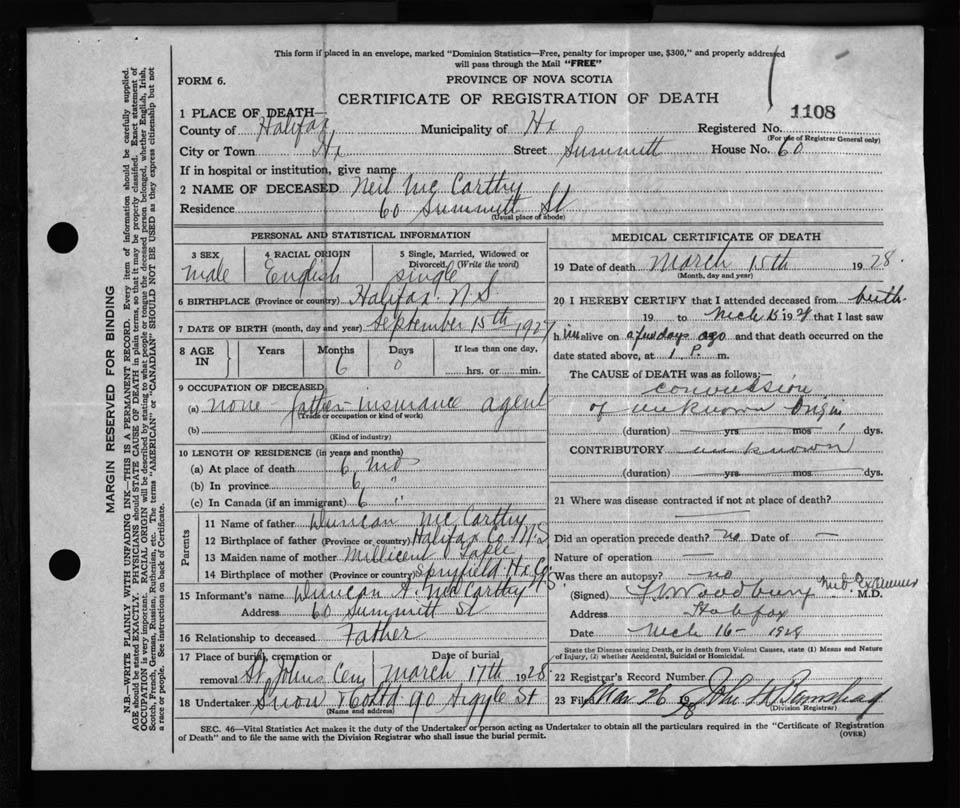 This form if placed in an envelope, marked "Dominion Statistics—Free, penalty for improper use, $300," and properly addressed
will pass through the Mail "FREE"
FORM 6.
PROVINCE OF NOVA SCOTIA
CERTIFICATE OF REGISTRATION OF DEATH
1108
1 PLACE OF DEATH—
County of Halifax Municipality of Hx Registered No.
(For use of Registrar General only)
City or Town Hx Street Summitt House No. 60
If in hospital or institution, give name
2 NAME OF DECEASED Neil McCarthy
Residence 60 Summitt St
(Usual place of abode)
PERSONAL AND STATISTICAL INFORMATION
3 SEX 4 RACIAL ORIGIN 5 Single, Married, Widowed or Divorced. (Write the word)
male English single
6 BIRTHPLACE (Province or country) Halifax N.S
7 DATE OF BIRTH (month, day and year) September 15th 1927
8 AGE IN Years Months Days If less than one day,
6 0 hrs. or min.
9 OCCUPATION OF DECEASED
(a) none father insurance agent
(Trade or occupation or kind of work)
(b)
(Kind of industry)
10 LENGTH OF RESIDENCE (in years and months)
(a) At place of death 6 mos
(b) In province 6 "
(c) In Canada (if an immigrant) 6 "
Parents
11 Name of father Duncan McCarthy
12 Birthplace of father (Province or country) Halifax Co N.S
13 Maiden name of mother Millicent
14 Birthplace of mother (Province or country) Spryfield Hx Co NS
15 Informant's name Duncan A. McCarthy
Address 60 Summitt St
16 Relationship to deceased Father
17 Place of burial, cremation or removal Date of burial
St Johns Cem March 17th 1928
18 Undertaker Snow & Co Ltd 90 Argyle St
(Name and address)
MEDICAL CERTIFICATE OF DEATH
19 Date of death March 15th 1928.
(Month, day and year)
20 I HEREBY CERTIFY that I attended deceased from birth
19 to Mch 15 1928 that I last saw
him alive on a few days ago and that death occurred on the
date stated above, at 1 P. m.
The CAUSE of DEATH was as follows:—
convulsion
of unknown origin
(duration) yrs mos dys.
CONTRIBUTORY unknown
(duration) yrs mos dys.
21 Where was disease contracted if not at place of death?
Did an operation precede death? no Date of —
Nature of operation —
Was there an autopsy? no
Med Examiner
(Signed) Woodbury M.D.
Address Halifax
Date Mch 16- 1928
State the Disease causing Death, or in death from Violent Causes, state (1) Means and Nature
of Injury, (2) whether Accidental, Suicidal or Homicidal.
22 Registrar's Record Number
23 Filed Mar 26 28 John
(Division Registrar)
SEC. 46—Vital Statistics Act makes it the duty of the Undertaker or person acting as Undertaker to obtain all the particulars required in the "Certificate of Registration
of Death" and to file the same with the Division Registrar who shall issue the burial permit.
(OVER)
MARGIN RESERVED FOR BINDING
N.B.—WRITE PLAINLY WITH UNFADING INK—THIS IS A PERMANENT RECORD. Every item of information should be carefully supplied.
AGE should be stated EXACTLY. PHYSICIANS should STATE CAUSE OF DEATH in plain terms, so that it may be properly classified. Exact statement of
OCCUPATION is very important. RACIAL ORIGIN will be described by stating to what people or tongue the deceased person belonged, whether English, Irish,
Scotch, French, German, Russian, Ruthenian, etc. The terms "AMERICAN" or "CANADIAN" SHOULD NOT BE USED as they express citizenship but not
a race or people. See instructions on back of Certificate.